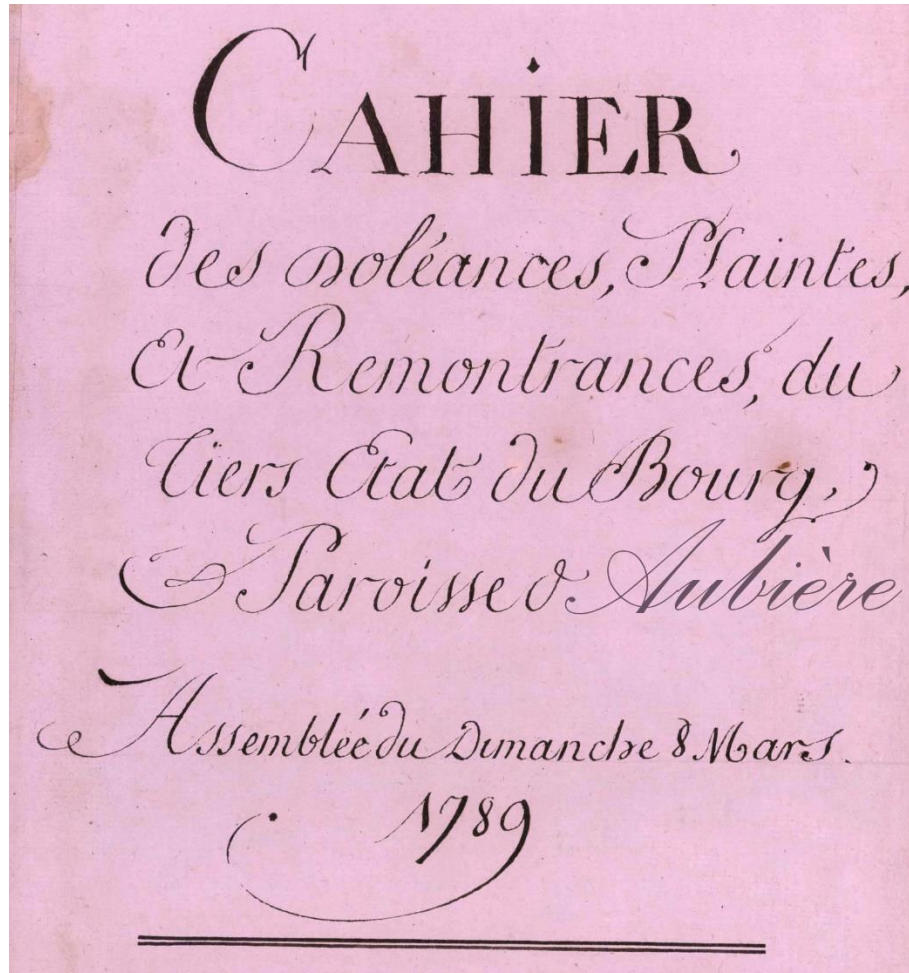 CAHiER
des Doléances, Plaintes,
Et Remontrances, du
Tiers Etat du Bourg,
& Paroisse d'Aubière
Assemblée du Dimanche 8 Mars.
1789